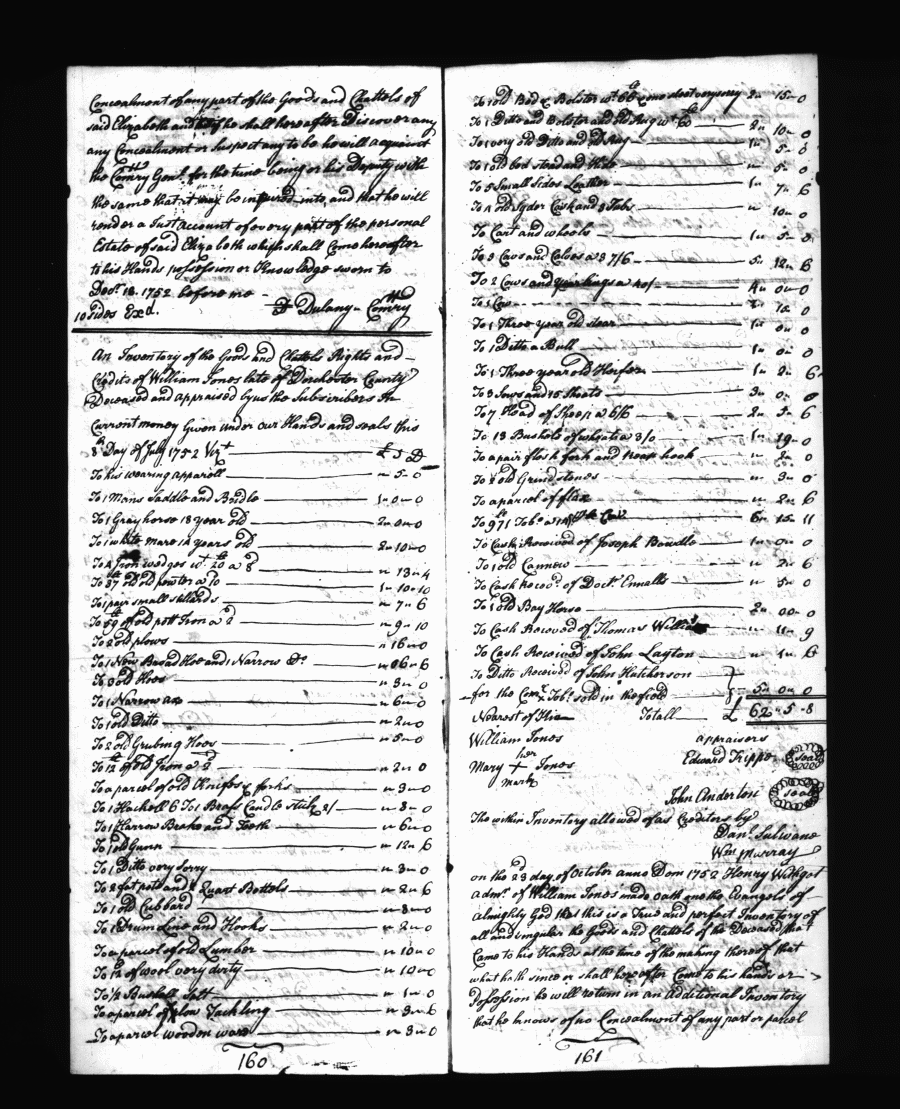 Concealment of any part of the Goods and Chattels of
said Elizabeth and that if he shall hereafter Discover any
any Concealment or suspect any to be he will acquaint
the Comry Genl. for the time being or his Deputy with
the same that it may be inquired into and that he will
render a Just account of every part of the personal
Estate of said Elizabeth which shall Come hereafter
to his Hands possession or Knowledge sworn to
Decr. 18. 1752 before me
10 sides Exd. D Dulany Comry
An Inventory of the Goods and Chattels Rights and
Credits of William Jones late of Dorchester County
Deceased and appraised by us the Subscribers In
Current money Given under our Hands and seals this
8th Day of July 1752 Vizt £ S D
To his wearing apparell " 5 " 0
To 1 Mans Saddle and Bridle 1 " 0 " 0
To 1 Gray horse 18 year old 2 " 0 " 0
To 1 white mare 12 years old 2 " 10 " 0
To 4 Iron wedges wt. 20 a 8 " 13 " 4
To 37 old old pewter a 10 1 " 10 " 10
To 1 pair small stillards " 7 " 6
To 59 of old pott Iron a 2 " 9 " 10
To 2 old plows " 16 " 0
To 1 New Broad Hoe and 1 Narrow Do. " 06 " 6
To 3 old Hoes " 3 " 0
To 1 Narrow ax " 6 " 0
To 1 old Ditto " 2 " 0
To 2 old Grubing Hoes " 5 " 0
To 12 of old Iron a 2 " 2 " 0
To a parcel of old Knifes & forks " 3 " 0
To 1 Hackell 6 To 1 Brass Candle Stick 2/ " 8 " 0
To 1 Harrow Brake and Teeth " 6 " 0
To 1 old Gunn " 12 " 6
To 1 Ditto very sorry " 3 " 0
To 2 fat pots and 2 Quart Bottels " 2 " 6
To 1 old Cubbard " 8 " 0
To 1 Drum Line and Hooks " 2 " 0
To a parcel of old Lumber " 10 " 0
To 12 of wool very dirty " 10 " 0
To 1/2 Bushell Salt " 1 " 0
To a parcel of plow Tackling " 3 " 6
To a parcel wooden ware " 3 " 0
160
To 1 old Bed & Bolster wt 66 & one sheet very sorry 2 " 15 " 0
To 1 Ditto and Bolster and old Rug wt 60 2 " 10 " 0
To 1 very old Ditto and old Rug 1 " 5 " 0
To 1 old bed stead and Hide " 5 " 0
To 5 Small Sides Leather 1 " 7 " 6
To 4 old Syder Cask and 3 Tubs " 10 " 0
To Cart and wheels 1 " 5 " 0
To 3 Cows and Calves a 37/6 5 " 12 " 6
To 2 Cows and yearlings a 40/ 4 " 0 " 0
To 1 Cow
To 1 Three year old stear 1 " 0 " 0
To 1 Ditto a Bull 1 " 0 " 0
To 1 Three year old Heifer 1 " 2 " 6
To 3 Sows and 15 Shoats 3 " 0 " 0
To 7 Head of Sheep a 6/6 2 " 5 " 6
To 13 Bushels of wheat a 3/0 1 " 19 " 0
To a pair flesh fork and hook " 2 " 0
To old Grindstones " 3 " 0
To a parcel of flax " 2 " 6
To 971 Tobo. 6 " 15 " 11
To Cash Received of Joseph Bowdle 1 " 0 " 0
To 1 old " 2 " 6
To Cash Recd. of Doctr. Ennalls " 5 " 0
To 1 old Bay Horse 2 " 00 " 0
To Cash Received of Thomas Williams " 11 " 9
To Cash Received of John Layton " 1 " 6
To Ditto Received of John Hutcherson
for the Tobo. sold in the field 5 " 0 " 0
Nearest of Kin Totall £ 62 " 5 " 8
William Jones appraisers
her
Mary + Jones Edward Trippe seal
mark
John Anderton seal
The within Inventory allowed of as Creditors by
Danl. Sulivane
Wm Murray
on the 23 day of October anno Dom 1752 Henry
admr. of William Jones made oath on the Evangels of
almighty God that this is a True and perfect Inventory of
all and singuler the Goods and Chattels of the Deceased that
Came to his Hands at the time of the making thereof that
what hath since or shall hereafter Come to his hands or
Possession he will return in an additional Inventory
that he knows of no Concealment of any part or parcel
161